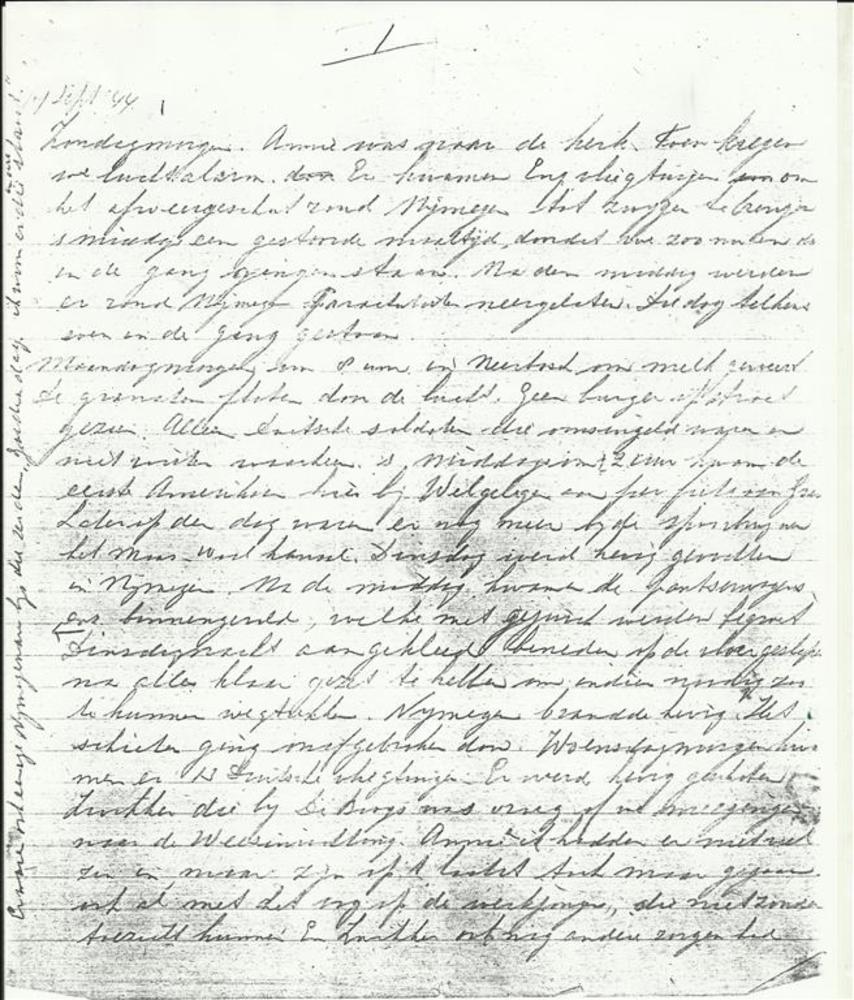 1
17 Sept '44
Zondagmorgen. Annie was naar de kerk. Toen kregen
we luchtalarm. Er kwamen Eng vliegtuigen om
het afweergeschut rond Nijmegen tot zwijgen te brengen
's middags een gestoorde maaltijd, doordat we zoo nu en dan
in de gang gingen staan. Na den middag werden
er rond Nijmegen Parachutisten neergelaten. Die dag telkens
even in de gang gestaan.
Maandagmorgen om 8 uur in Neerbosch om melk geweest
De granaten floten door de lucht. Geen burger op straat
gezien. Alleen Duitsche soldaten die omsingeld waren en
niet wisten waarheen. 's Middags om 2 uur kwam de
eerste Amerikaan hier bij Welgelegen aan per fiets van
Later op den dag waren er nog meer bij de spoorbrug over
het Maas-Waal kanaal. Dinsdag werd hevig gevochten
in Nijmegen. Na de middag kwamen de pantserwagens
ons binnengerold, welke met gejuich werden begroet
Dinsdagnacht aangekleed beneden op de vloer geslapen
na alles klaar gezet te hebben om indien noodig zou
te kunnen wegtrekken. Nijmegen brandde hevig. Het
schieten ging onafgebroken door. Woensdagmorgen kwa
men er 13 Duitsche vliegtuigen. Er werd hevig geschoten
die bij De Burgs was vroeg of we meegingen
naar de Weesinrichting. Annie en ik hadden er niet veel
zin in maar zijn op 't laatst toch maar gegaan.
ook al met het oog op de werkjongens, die niet zonder
toezicht kunnen. En ook nog andere zorgen had